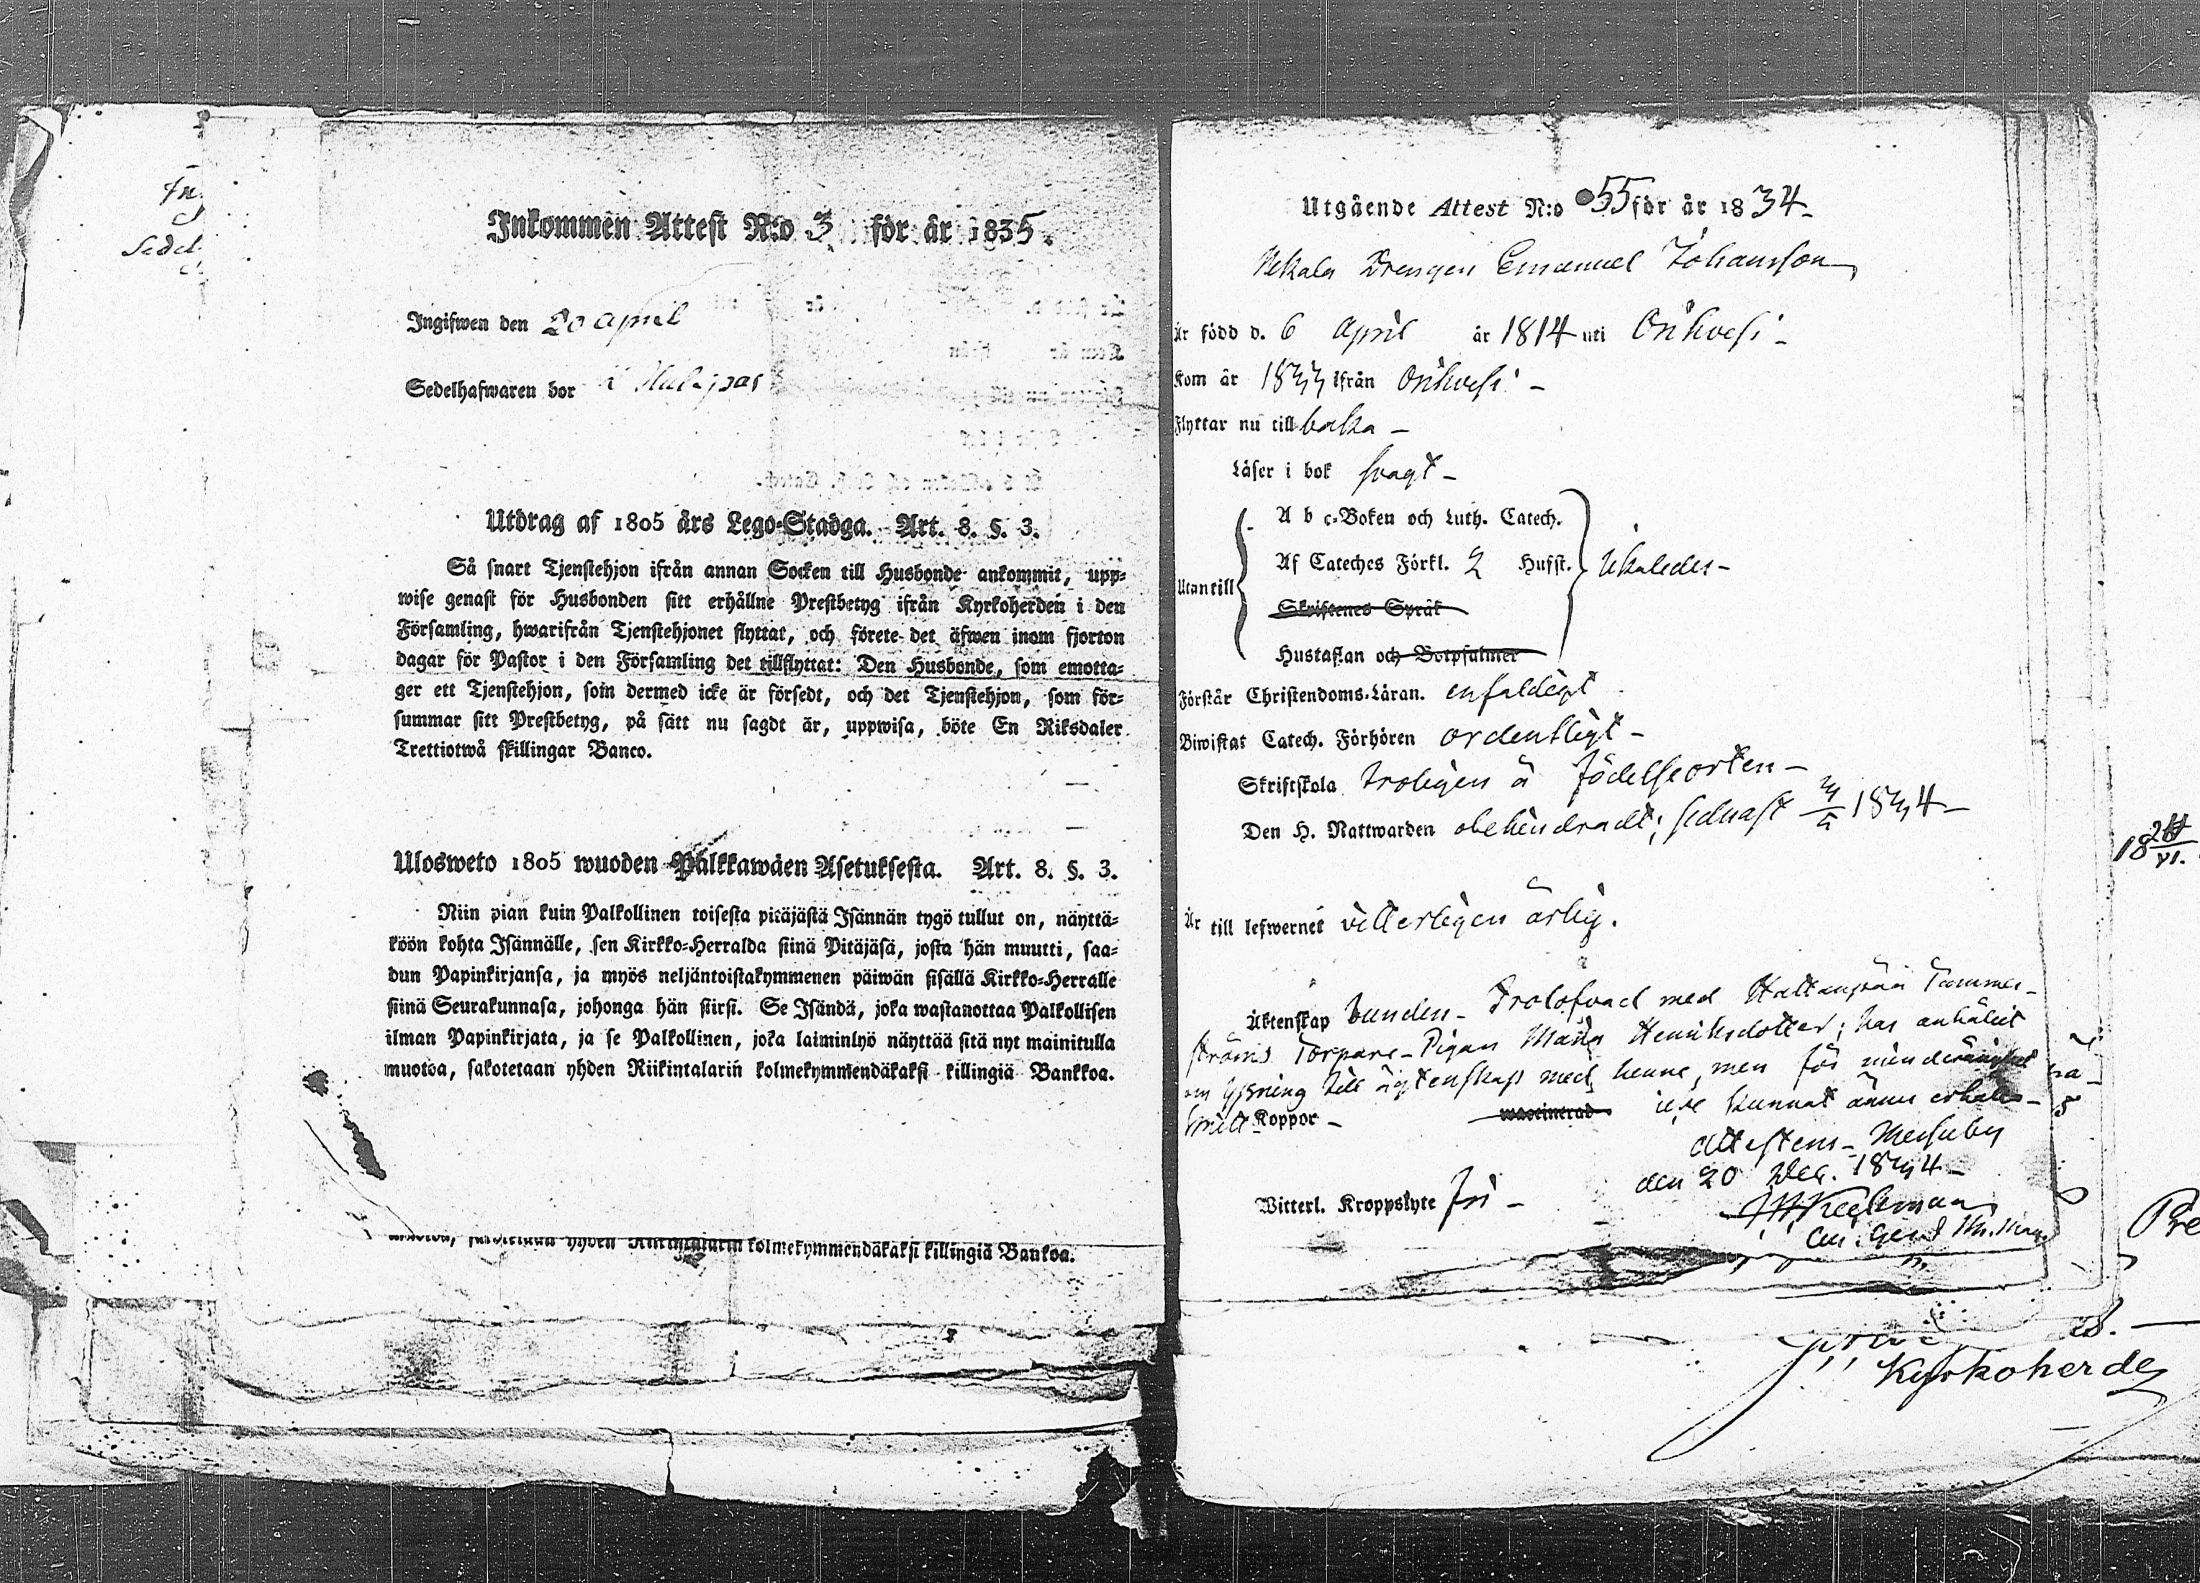 Sedel
Inkommen Attest N:o 3 för år 1835.
Ingifwen den 20 april
Sedelhafwaren bor i
Utdrag af 1805 års Lego-Stadga. Art. 8. §. 3.
Så snart Tjenstehjon ifrån annan Socken till Husbonde ankommit, upp-
wise genast för Husbonden sitt erhållne Prestbetyg ifrån Kyrkoherden i den
Församling, hwarifrån Tjenstehjonet flyttat, och förete det äfwen inom fjorton
dagar för Pastor i den Församling det tillflyttat: Den Husbonde, som emotta-
ger ett Tjenstehjon, som dermed icke är försedt, och det Tjenstehjon, som för-
summar sitt Prestbetyg, på sätt nu sagdt är, uppwisa, böte En Riksdaler
Trettiotwå skillingar Banco.
Ulosweto 1805 wuoden Palkkawäen Asetuksesta. Art. 8. §. 3.
Niin pian kuin Palkollinen toisesta pitäjästä Isännän tygö tullut on, näyttä-
köön kohta Isännälle, sen Kirkko-Herralda siinä Pitäjäsä, josta hän muutti, saa-
dun Papinkirjansa, ja myös neljäntoistakymmenen päiwän sisällä Kirkko-Herralle
siinä Seurakunnasa, johonga hän siirsi. Se Isändä, joka wastanottaa Palkollisen
ilman Papinkirjata, ja se Palkollinen, joka laiminlyö näyttää sitä nyt mainitulla
muotoa, sakotetaan yhden Riikintalarin kolmekymmendäkaksi killingiä Bankkoa.
yhden Riikintalarin kolmekymmendäkaksi killingiä Bankoa.
Utgående Attest N:o 55 för år 1834
Drengen Emanuel Johansson
Är född d. 6 April år 1814 uti Orihvesi
Kom år 1833 ifrån Orihvesi
Flyttar nu till baka
Läser i bok svagt
A b c-Boken och Luth. Catech.
Af Cateches Förkl. 2 Hufst. likaledes
Utantill
Skriftenes Språk
Hustaflan och Botpsalmer
Förstår Christendoms-Läran. enfaldigt
Biwistat Catech. Förhören ordentligt
Skriftskola troligen å födelseorten
Den H. Nattwarden obehindradt; sednast 1834
Är till lefwernet vitterligen ärlig.
Äktenskap bunden. Trolofvad med Hattanpää Tammer-
ströms Torpare-Pigan Maria Henriksdotter; har anhållit
om lysning till ägtenskap med henne, men för minderårighet
icke kunnat ännu erhålla
Koppor waccinerad
Attestens Messuby
den 20 Dec. 1834
Witterl. Kroppslyte fri
Kyrkoherde